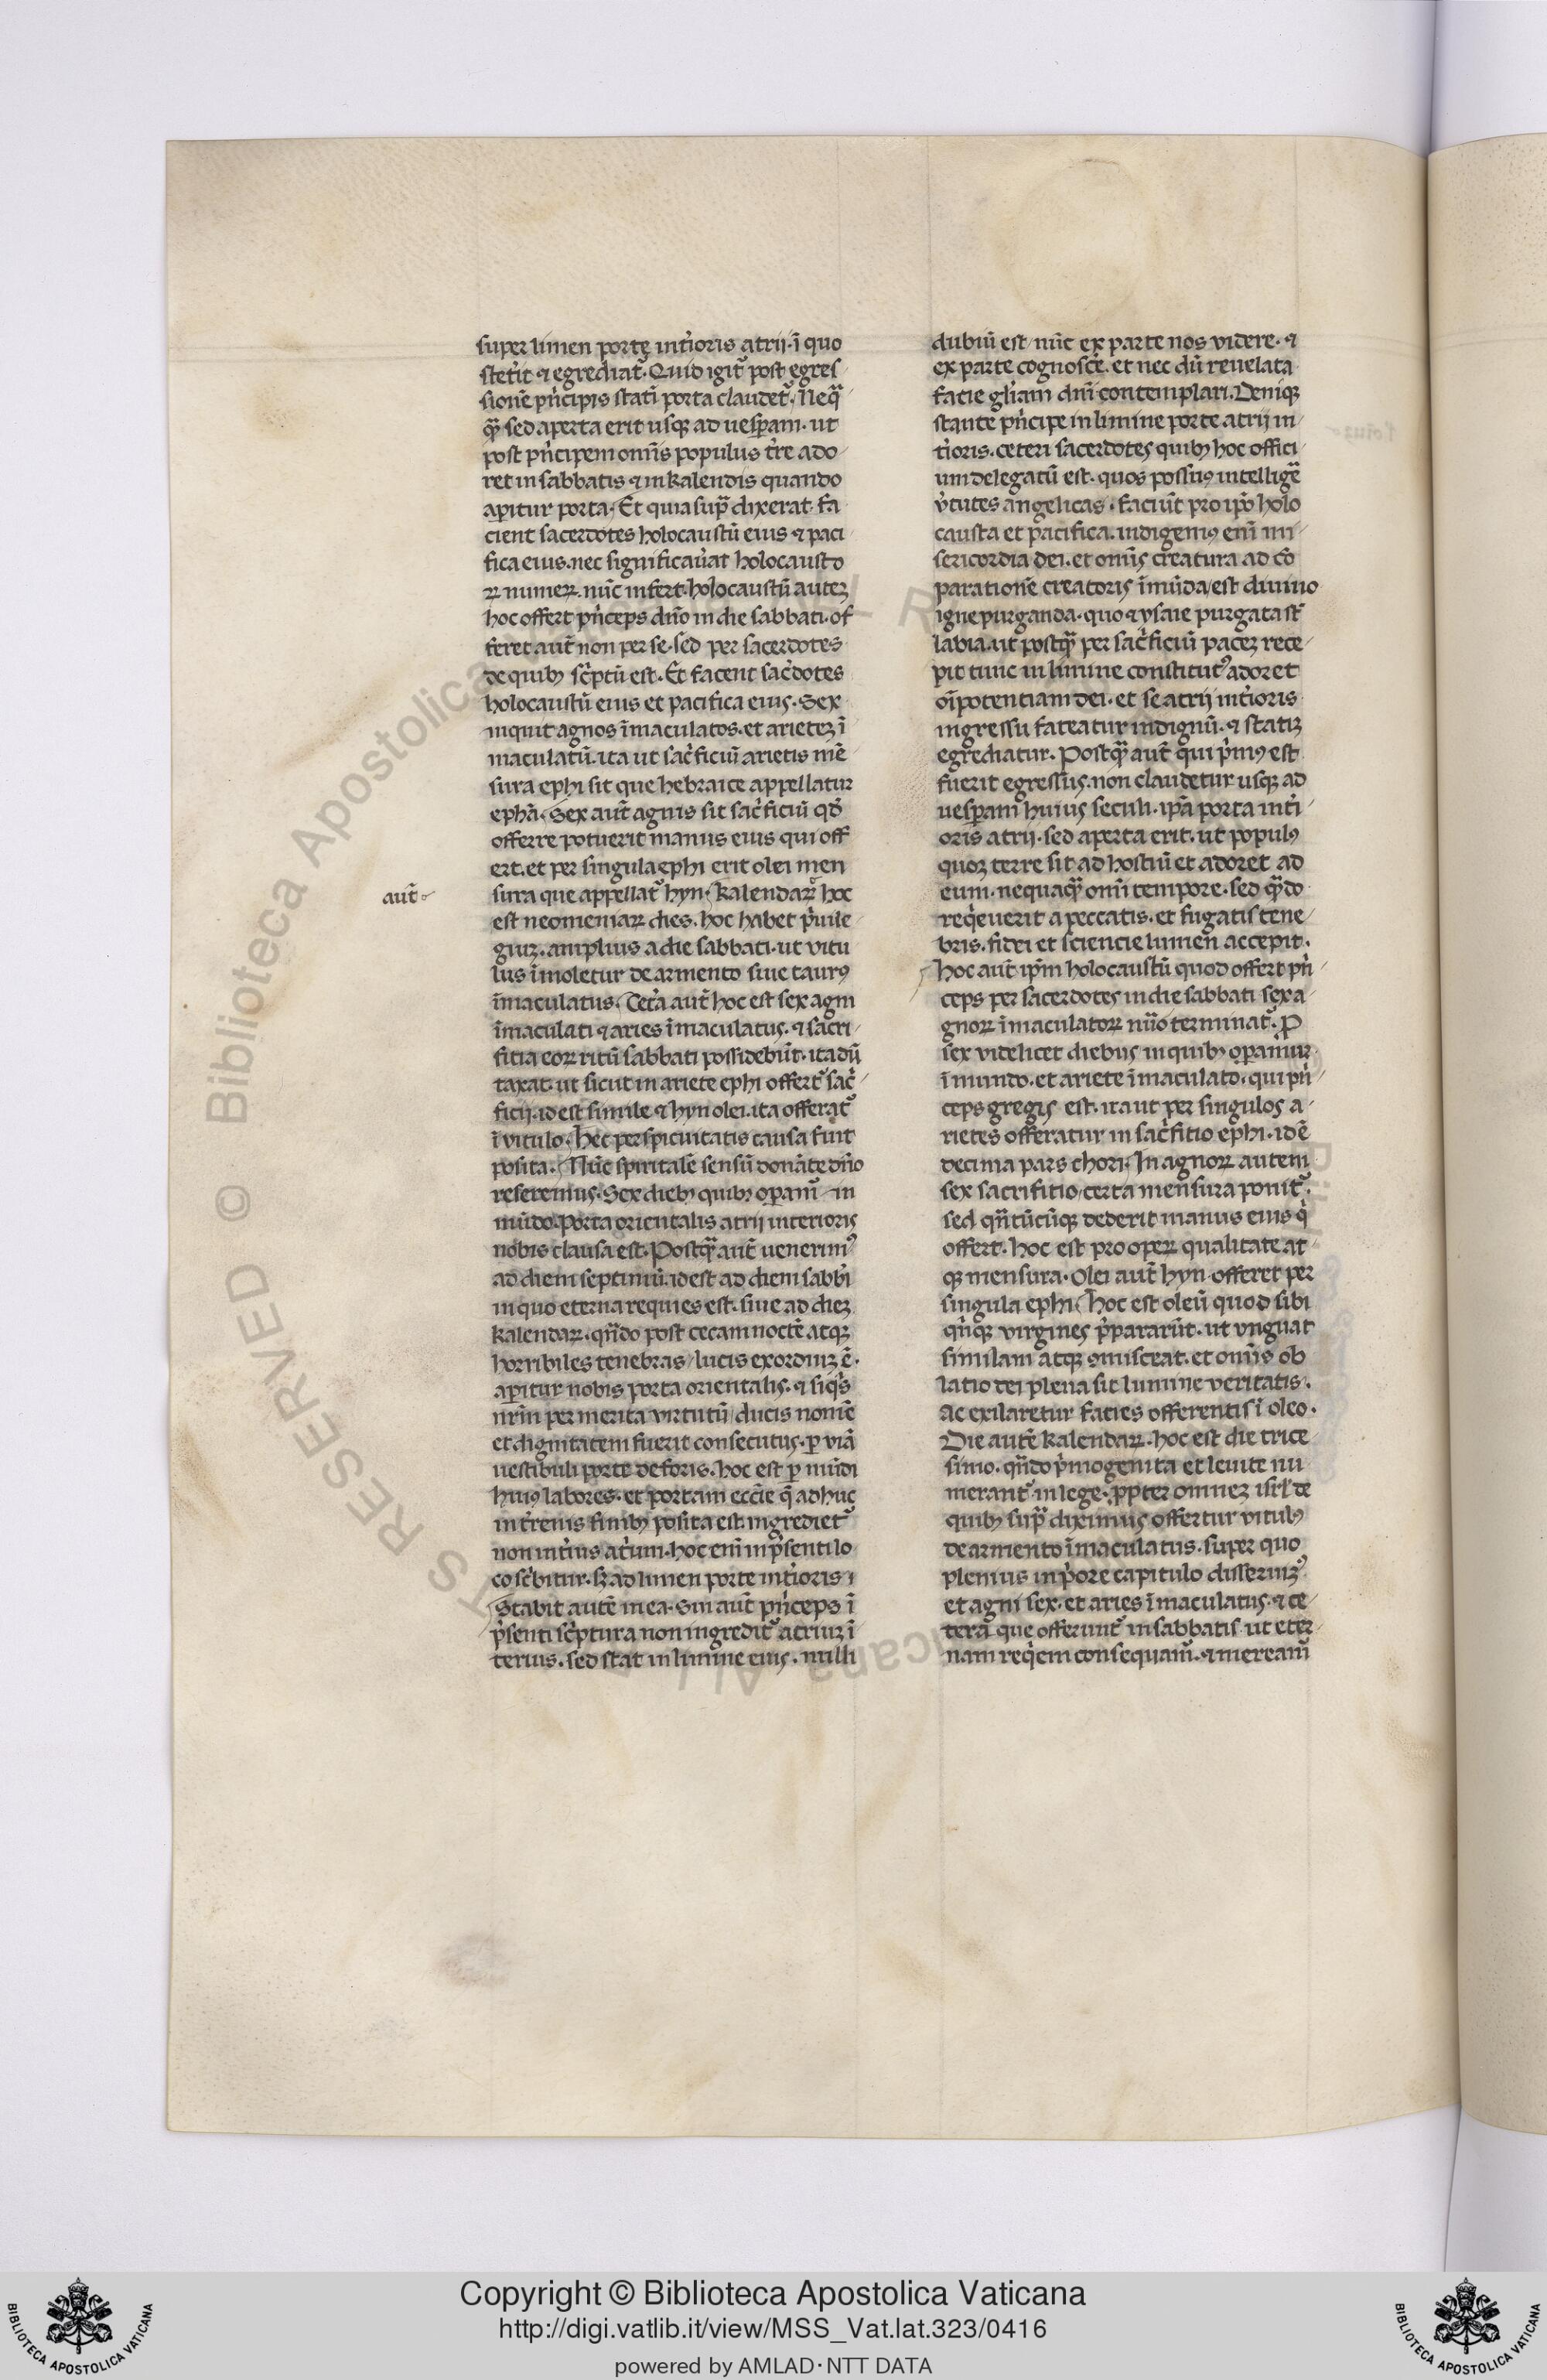 super limen portę intͥoris atrij· ī quo
stetͥit ⁊ egrediat᷑. Quid igit᷑ post egres
sionē pͥncipis statī porta claudet᷑. Neq̄
qȝ̄ sed aperta erit usqȝ ad ues̄pam· ut
post pͥncipem om̄is populus tr̄re ado
ret in sabbatis ⁊ in kalendis quando
apͣitur porta· Et quia sup̄ dixerat· fa
cient sacerdotes holocaustū eius ⁊ paci
fica eius. nec significau̾at holocausto
ꝝ numeꝝ. nūc infert· holocaustū autez
hoc offert pͥnceps dn̄o in die sabbati· of
feret aut̄ non per se· sed per sacerdotes
de quibȝ scͥptū est. Et facent sac̾dotes
holocaustū eius et pacifica eius· Sex
inquit agnos īmaculatos. et arietez ī
maculatū. ita ut sacͥficiū arietis mē
sura ephi sit que hebraice appellatur
ephā. Sex aut̄ agnis sit sacͥficiū qd̄
offerre potuerit manus eius qui off
ert. et per singula ephi erit olei men
aut̄
sura que appellat᷑ hyn· Kalendaꝝ hoc
est neomeniaꝝ dies. hoc habet pͥuile
giuz. amplius a die sabbati· ut vitu
lus īmoletur de armento siue taurꝰ
īmaculatus. Cet̾a aut̄ hoc est sex agni
īmaculati ⁊ aries īmaculatus. ⁊ sacri
fitia eoꝝ ritū sabbati possidebūt. ita dū
taxat. ut sicut in ariete ephi offert᷑ sacͥ
ficij. id est simile ⁊ hyn olei. ita offerat᷑
ī vitulo. Hec perspicuitatis causa fuit
posita. Nūc spiritalē sensū donāte dn̄o
reseremus· Sex diebȝ quibȝ opam᷑ in
mūdo. porta orientalis atrij interioris
nobis clausa est. Postqȝ̄ aut̄ uenerimꝰ
ad diem septimū. id est ad diem sabb̾i
in quo eterna requies est. siue ad diez
kalendaꝝ. qn̄do post cecam noctē atqȝ
horribiles tenebras lucis exordiuz ē.
apͣitur nobis porta orientalis. ⁊ siqͥs
nr̄m per merita virtutū ducis nomē
et dignitatem fuerit consecutus. ꝑ viā
uestibuli porte deforis. hoc est ꝑ mūdi
huiꝰ labores. et portam eccl̄ie q̄ adhuc
in tr̾enis finibȝ posita est. ingrediet᷑
non intͥius atͥum. hoc enī in pͥsenti lo
co scͥbitur. sȝ ad limen porte intͥioris
Stabit autē in ea. Sin aut̄ pͥnceps ī
pͥsenti scͥptura non ingredit᷑ atriuz ī
terius. sed stat in limine eius. nulli
dubiū est nūc ex parte nos videre. ⁊
ex parte cognosc̾e. et nec dū reuelata
facie gl̄iam dn̄i contemplari. Deniqȝ
stante pͥncipe in limine porte atrij in
tͥioris. ceteri sacerdotes quibȝ hoc offici
um delegatū est. quos possumꝰ intellige̾
v̾tutes angelicas. faciūt pro ip̄o holo
causta et pacifica. indigemꝰ enī mi
sericordia dei. et om̄is creatura ad cō
parationē creatoris īmūda est diuino
igne purganda. quo ⁊ ysaie purgata st̄
labia. ut postqȝ̄ per sacͥficiū pacez rece
pit tunc in limine constitutꝰ adoret
oīpotentiam dei. et se atrij intͥioris
ingressu fateatur indignū. ⁊ statiz
egrediatur. Postqȝ̄ aut̄ qui pͥmꝰ est
fuerit egressus. non claudetur usqȝ ad
ues̄pam huius seculi. ip̄a porta intͥi
oris atrij. sed aperta erit. ut populꝰ
quoz terre sit ad hostiū et adoret ad
eum. nequaqȝ̄ om̄i tempore. sed qȝ̄do
reqͥeuerit a peccatis. et fugatis tene
bris. fidei et sciencie lumen accepit.
Hoc aut̄ ip̄m holocaustū quod offert pͥn
ceps per sacerdotes in die sabbati sex a
gnoꝝ īmaculatoꝝ nūo terminat᷑. Ꝓ
sex videlicet diebus in quibȝ opamur
ī mundo. et ariete īmaculato. qui pͥn
ceps gregis est. ita ut per singulos a
rietes offeratur in sacͥfitio ephi. id ē
decima pars chori. In agnoꝝ autem
sex sacrifitio certa mensura ponit᷑.
sed qn̄tūcūqȝ dederit manus eius qͥ
offert. hoc est pro opeꝝ qualitate at
qȝ mensura. Olei aut̄ hyn offeret per
singula ephi. Hoc est oleū quod sibi
qͥnqȝ virgines pͥpararūt. ut vnguat
similam atqȝ ꝯmisceat. et om̄is ob
latio dei plena sit lumine veritatis.
Ac exilaretur facies offerentis ī oleo.
Die autē kalendaꝝ. hoc est die trice
simo. qn̄do pͥmogenita et leuite nu
merant᷑ in lege. ꝓpter omnez isrl̄ de
quibȝ sup̄ diximus offertur vitulꝰ
de armento īmaculatus. super quo
plenius in pͥore capitulo disseruimꝰ
et agni sex. et aries īmaculatus. ⁊ ce
tera que offerunt᷑ in sabbatis ut eter
nam reqͥem consequam᷑. ⁊ meream᷑
Copyright © Biblioteca Apostolica Vaticana
http://digi.vatlib.it/view/MSS_Vat.lat.323/0416
powered by AMLAD·NTT DATA
BIBLIOTECA APOSTOLICA VATICANA
BIBLIOTECA APOSTOLICA VATICANA